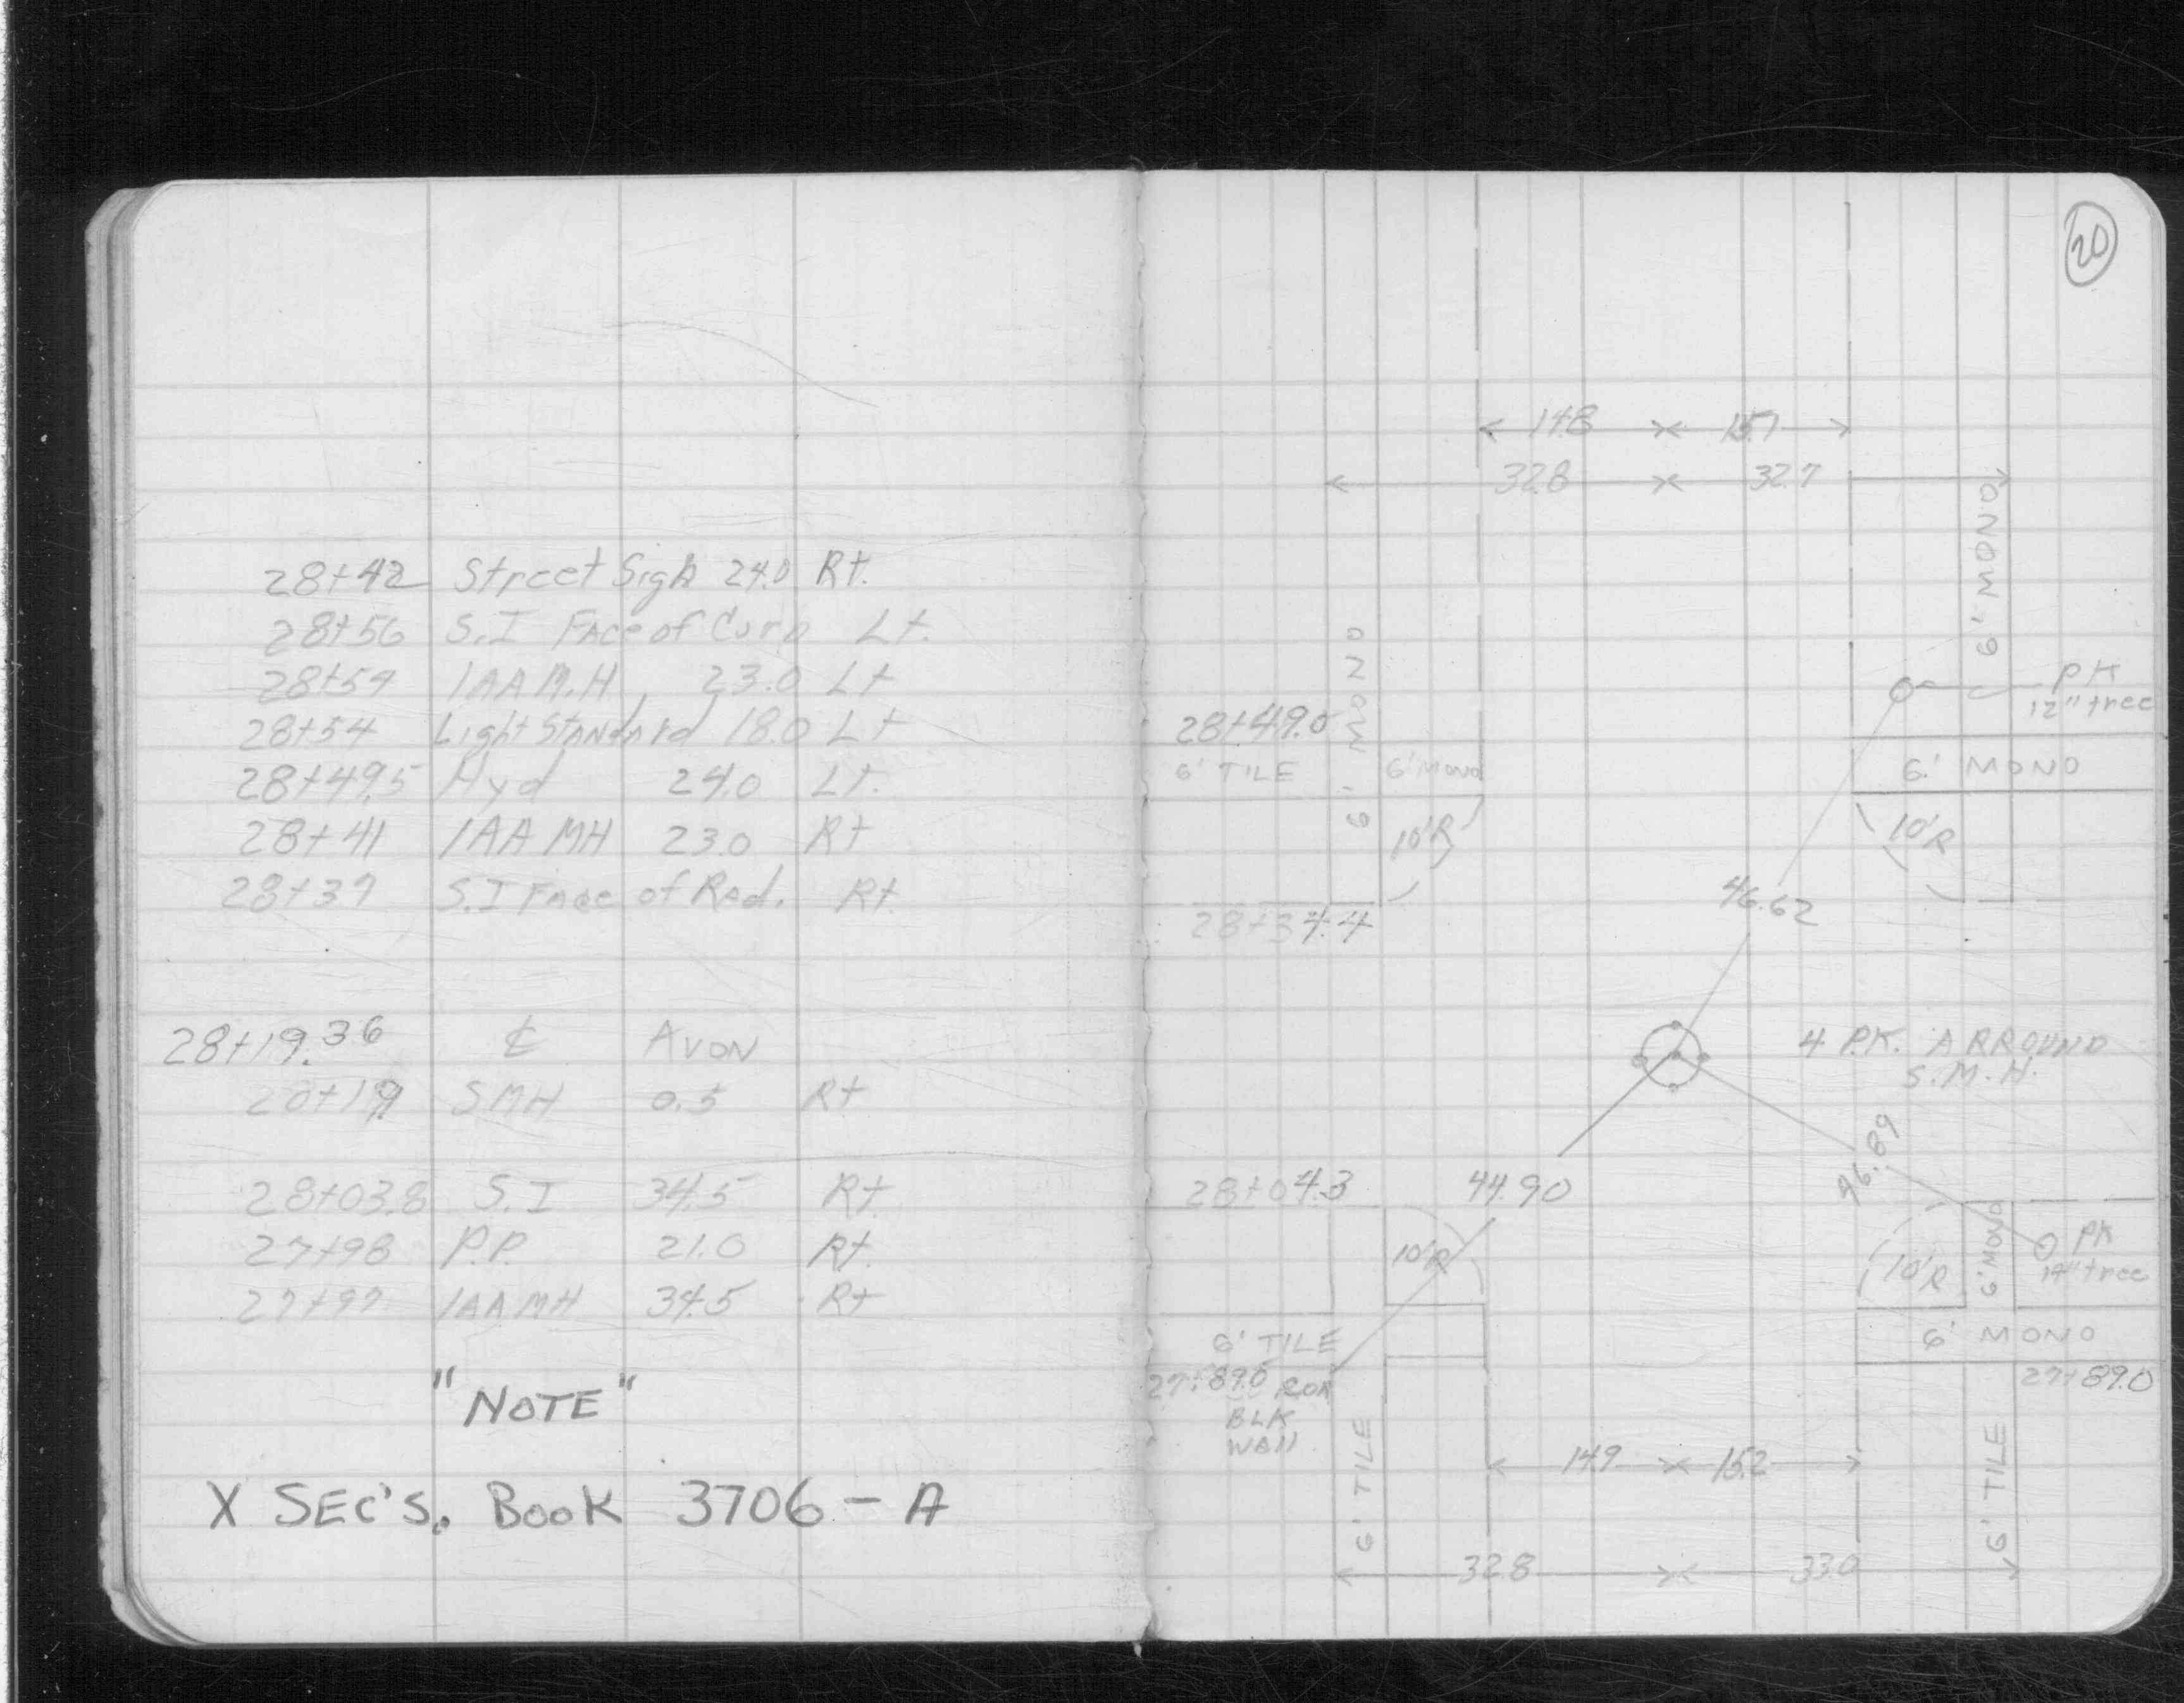 28+42 Street Sign 24.0 Rt.
28+56 S.I Face of Curb Lt.
28+54 IAA M.H, 23.0 Lt
28+54 Light Standard 18.0 Lt
28+49.5 Hyd 24.0 Lt.
28+41 IAA MH 23.0 Rt
28+37 S.I Face of Rad. Rt
28+19.36 ℄ AVON
28+19 SMH 0.5 Rt
28+03.8 S.I 34.5 Rt
27+98 P.P. 21.0 Rt.
27+97 IAA MH 34.5 Rt
"NOTE"
X SEC'S. BOOK 3706-A
20
14.8 15.7
32.8 32.7
6' MONO
6' MONO
PK
12" tree
28+49.0
6' TILE 6' MONO
6' MONO
10'R
10'R
28+34.4
46.62
4 P.K. ARROUND
S.M.H.
46.89
28+04.3
44.90
10'R
10'R
6' MONO
PK
14" tree
6' TILE
6' MONO
27+89.0
BLK
WALL
27+89.0
6' TILE
6' TILE
14.9 15.2
32.8 33.0